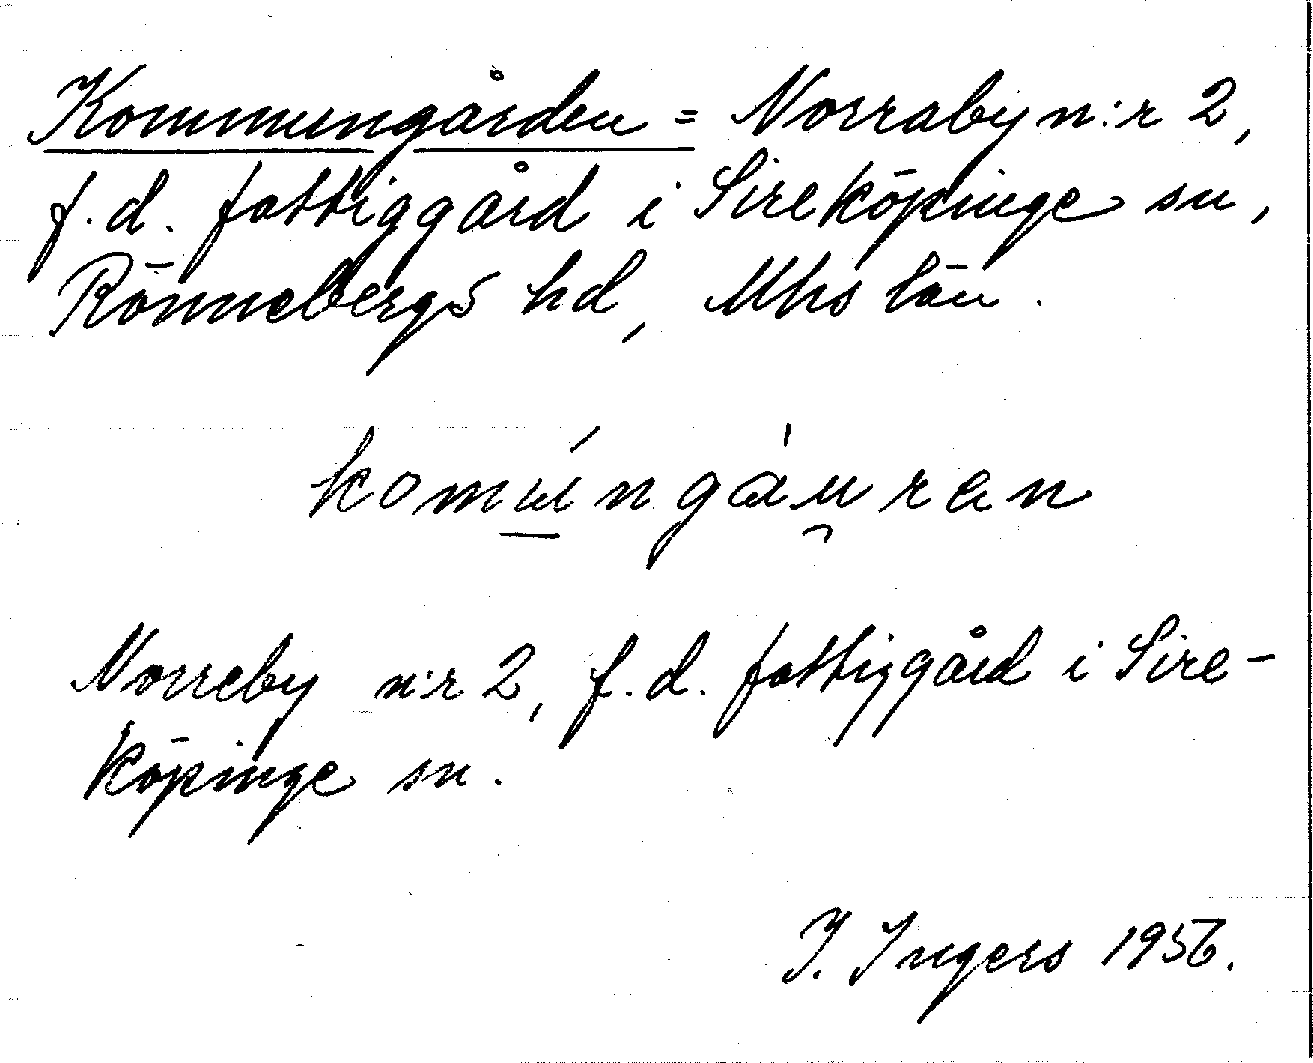 Kommungården = Norraby n:r 2,
f.d. fattiggård i Sireköpinge sn,
Rönnebergs hd, Mhs län.
komúngàu̯ran
Norreby n:r 2, f.d. fattiggård i Sire-
köpinge sn.
I. Ingers 1956.